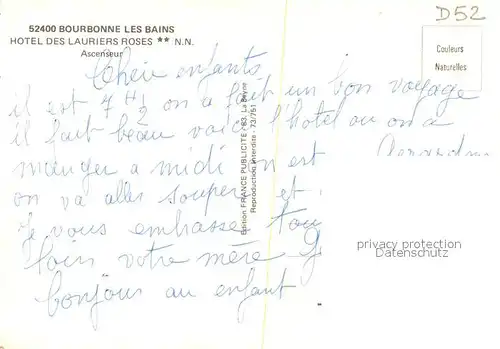 52400 BOURBONNE LES BAINS
HOTEL DES LAURIERS ROSES ** N.N.
Ascenseur
D52
Couleurs
Naturelles
Chers enfants
il est 7 H 1/2 on a fait un bon voyage
il fait beau voici l'hotel ou on a
manger a midi on est
on va alles souper et
Je vous embrasse tous
loin votre mère G
bonjour au enfant
Edition FRANCE PUBLICITE - 83. La Seyne
Reproduction Interdite - 73/751
privacy protection
Datenschutz